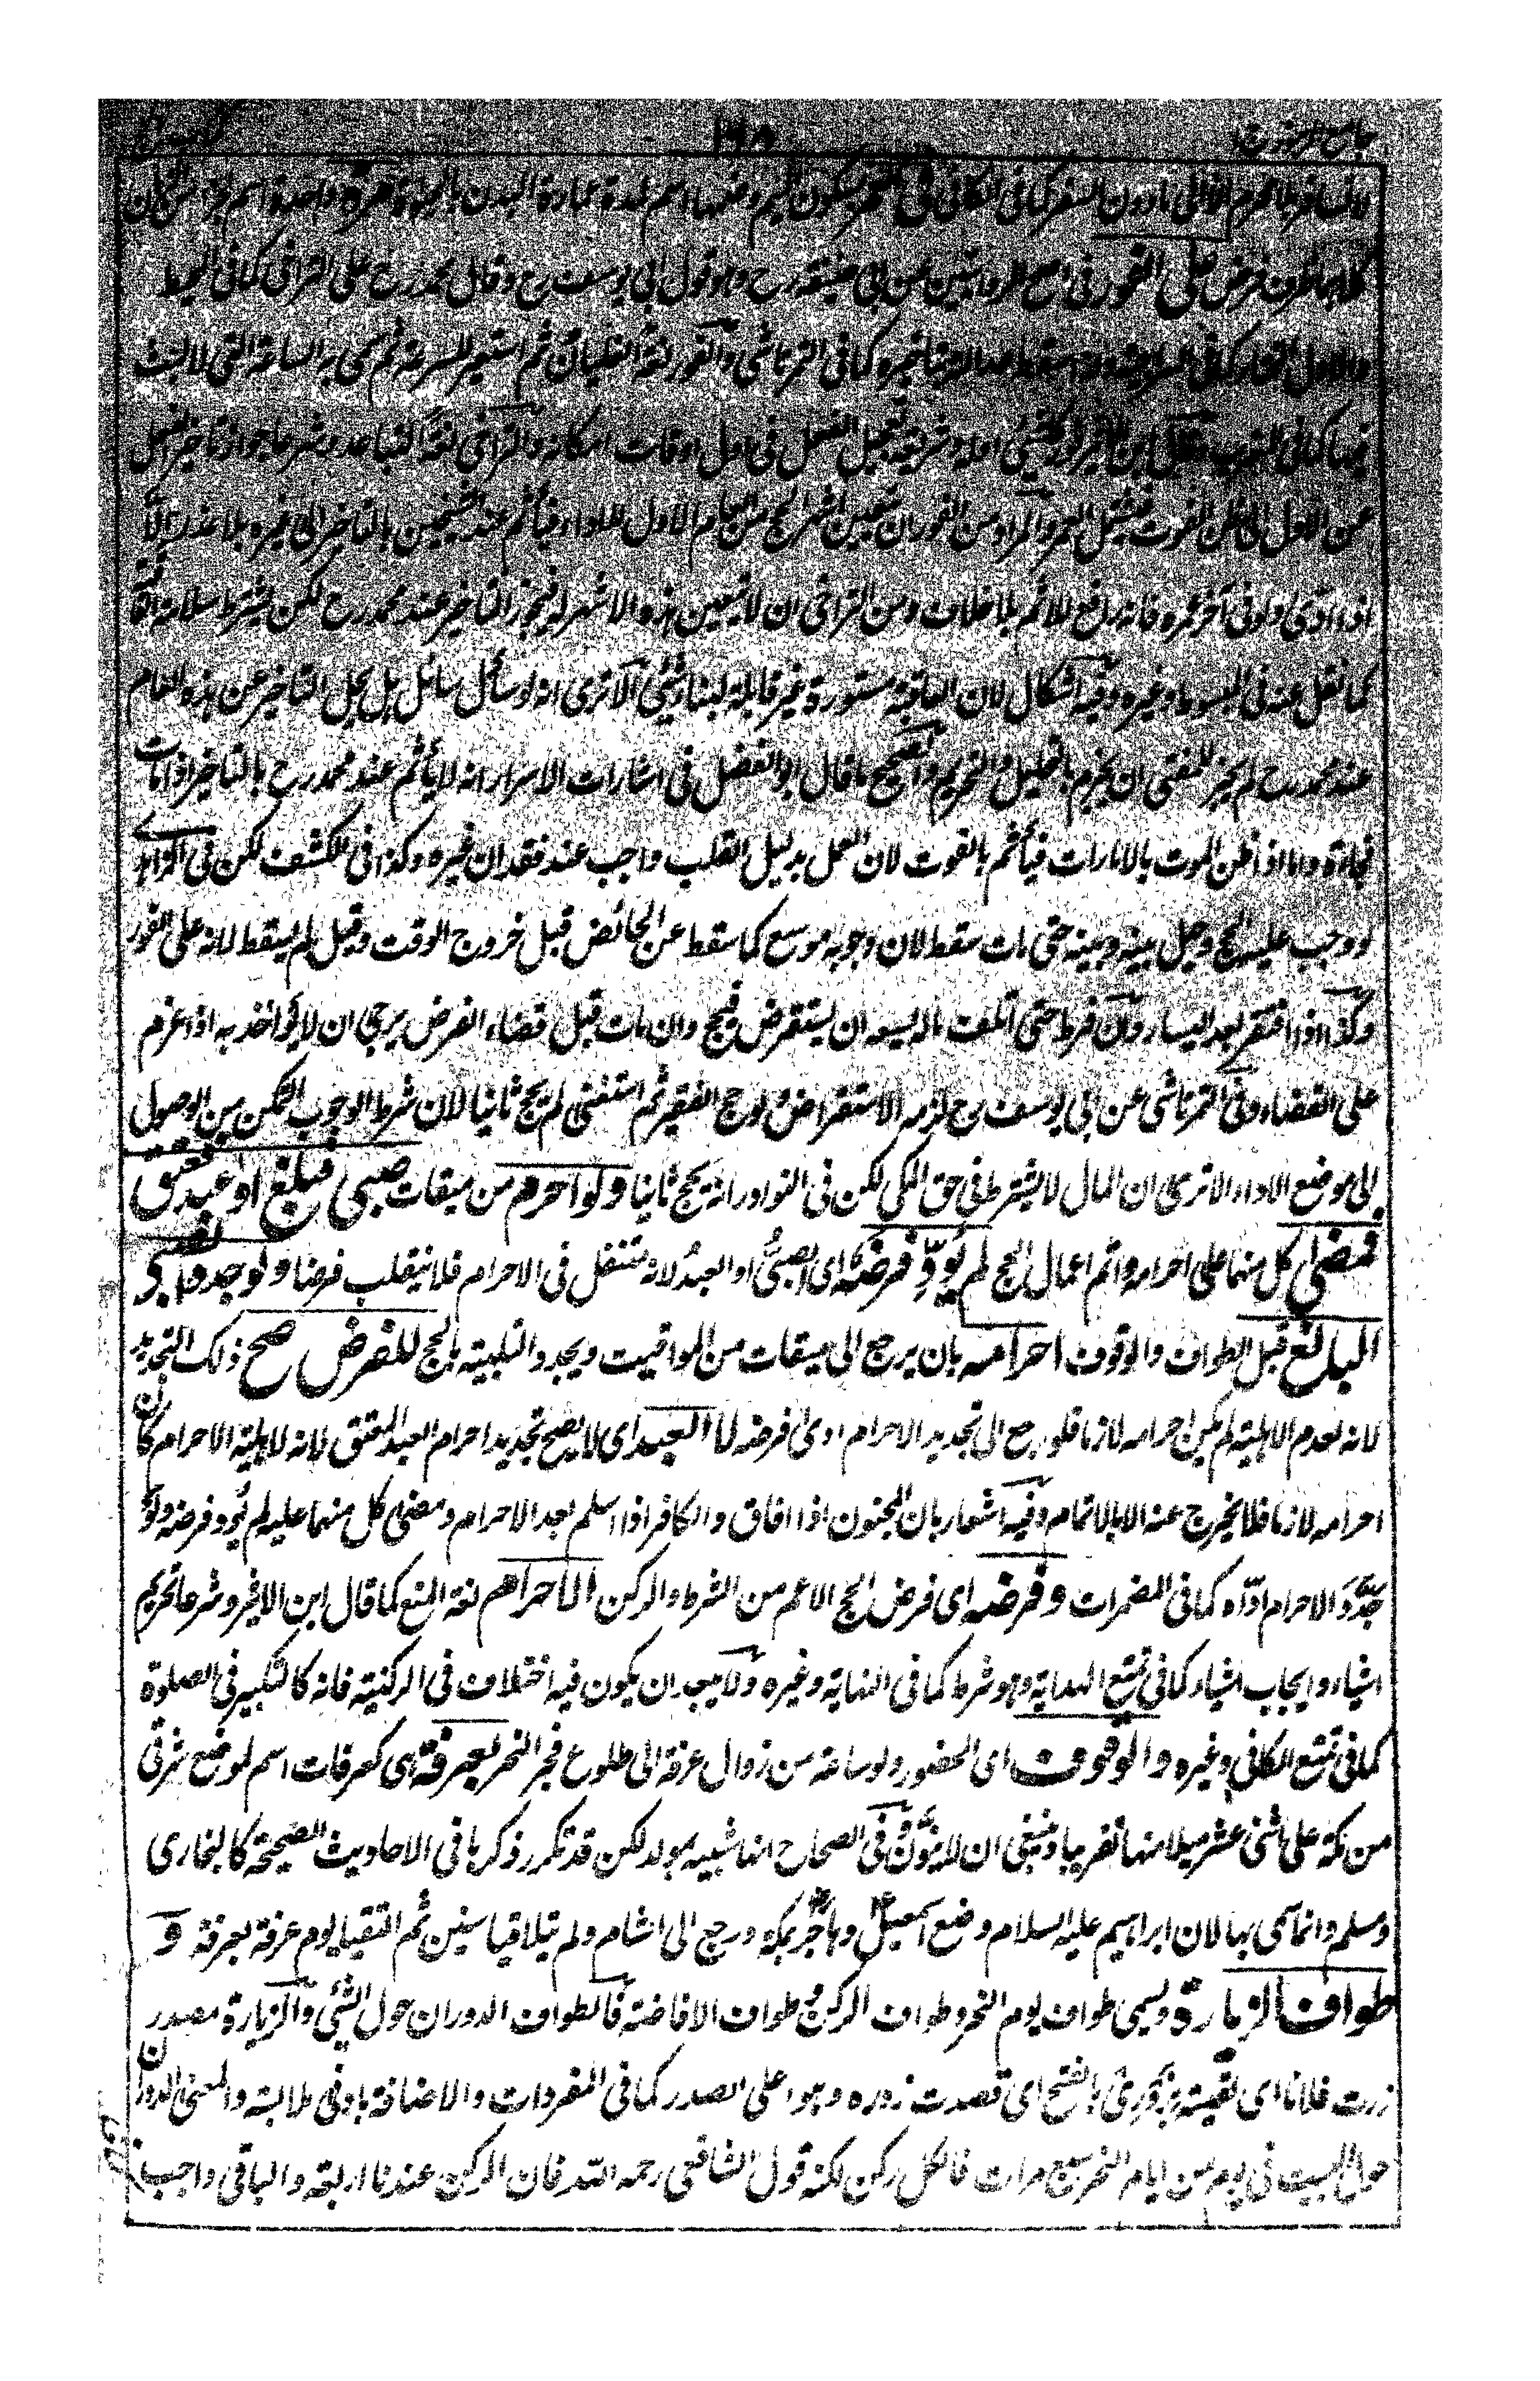 جامع الرموز
لا تسافر بلا محرم الا الى ما دون السفر كما فى الكافى فى العمر بسكون الميم وضمها اسم لمدة عمارة البدن بالحياة مرة واحدة اسم
فرض على الفور فى اصح الروايتين عن ابى حنيفة رح وهو قول ابى يوسف رح وقال محمد رح على التراخى كما فى المحيط
والاول كما فى التمرتاشى والفور لغة الغليان ثم استعير للسرعة ثم سمى به الساعة التى لا لبث
فيها كما فى المغرب وشريعة تعجيل الفعل فى اول اوقات امكانه والتراخى لغة التباعد وشرعا جواز تاخير الفعل
عن الاول الى ظن الفوت فيشمل العمر والمراد من الفور ان يتعين اشهر الحج من العام الاول للاداء فيأثم عند الشيخين بالتاخير الى غيره بلا عذر الا
اذا ادى ولو فى آخر عمره فانه رافع للاثم بلا خلاف ومن التراخى ان لا يتعين هذه الاشهر له فيجوز التاخير عند محمد رح لكن بشرط سلامة العاقبة
كما نقل عنه فى المبسوط وغيره وفيه اشكال لان العاقبة مستورة غير قابلة لبناء شئ الا ترى انه لو سأل سائل هل يحل التاخير عن هذه العام
عند محمد رح لم يجز للمفتى ان يجزم بالتحليل والتحريم والصحيح ما قال ابو الفضل فى اشارات الاسرار انه لا يأثم عند محمد رح بالتاخير اذا مات
فجاءة واما اذا ظن الموت بالامارات فيأثم بالفوت لان العمل بدليل القلب واجب عند فقدان غيره وكذا فى الكشف لكن فى الزاهدى
لو وجب عليه الحج وحيل بينه وبينه حتى مات سقط لان وجوبه موسع كما سقط عن الحائض قبل خروج الوقت وقيل لم يسقط لانه على الفور
وكذا اذا افتقر بعد اليسار وان فرط حتى اتلفت ماله يسعه ان يستقرض فيحج وان مات قبل قضاء القرض يرجى ان لا يؤاخذ به اذا عزم
على القضاء وفى التمرتاشى عن ابى يوسف رح لزمه الاستقراض ولو حج الفقير ثم استغنى لم يحج ثانيا لان شرط الوجوب التمكن من الوصول
الى موضع الاداء الا ترى ان المال لا يشترط فى حق المكى لكن فى النوادر انه يحج ثانيا ولو احرم من ميقات صبى فبلغ او عبد فعتق
فمضى كل منهما على احرامه واتم اعمال الحج لم يؤدّ فرضه اى الصبىُّ او العبدُ لانه متنفل فى الاحرام فلا ينقلب فرضا ولو جدد الصبى
البالغ قبل الطواف والوقوف احرامه بان يرجع الى ميقات من المواقيت ويجدد التلبية بالحج للفرض صح ذلك التجديد
لانه لعدم الاهلية لم يكن احرامه لازما فلو رجع الى تجديد الاحرام ادى فرضه لا العبد اى لا يصح تجديد احرام العبد المعتق لانه لاهلية الاحرام كان
احرامه لازما فلا يخرج عنه الا بالاتمام وفيه اشعار بان المجنون اذا افاق والكافر اذا اسلم بعد الاحرام ومضى كل منهما عليه لم يؤد فرضه ولو
جدَّدَ الاحرام ادّاه كما فى المضمرات وفرضه اى فرض الحج الاعم من الشرط والركن الاحرام لغة المنع كما قال ابن الاثير وشرعا تحريم
اشياء وايجاب اشياء كما فى تمتع الهداية وهو شرط كما فى النهاية وغيره ولا يبعد ان يكون فيه اختلاف فى الركنية فانه كالتكبير فى الصلوة
كما فى تمتع الكافى وغيره والوقوف اى الحضور ولو ساعة من زوال عرفة الى طلوع فجر النحر بعرفة هى كعرفات اسم لموضع شرقى
من مكة على اثنى عشر ميلا منها تقريبا وينبغى ان لا ينوّن وفى الصحاح انها شبيه بمولد لكن قد تكرر ذكرها فى الاحاديث الصحيحة كالبخارى
ومسلم وانما سمى بها لان ابراهيم عليه السلام وضع اسمعيل وهاجر بمكة ورجع الى الشام ولم يتلاقيا سنين ثم التقيا يوم عرفة بعرفة و
طواف الزيارة ويسمى طواف يوم النحر وطواف الركن وطواف الافاضة فالطواف الدوران حول الشئ والزيارة مصدر
زرت فلانا اى لقيته بزَوْرى بالفتح اى قصدت زوره وهو اعلى الصدر كما فى المفردات والاضافة بادنى ملابسة والمعنى الدوران
حوالى البيت فى يوم من ايام النحر سبع مرات فالكل ركن لكنه قول الشافعى رحمه الله فان الركن عندنا اربعة والباقى واجب